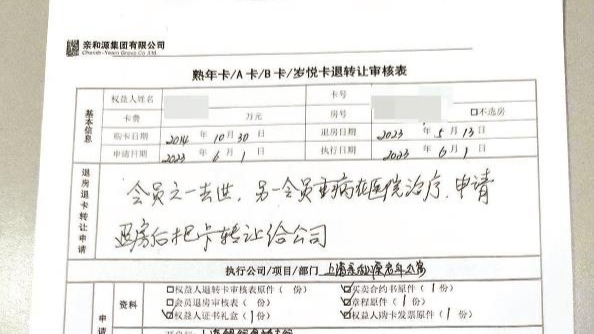 亲和源集团有限公司
熟年卡/A卡/B卡/岁悦卡退转让审核表
基本信息
权益人姓名 卡号
卡费 万元 房号 □不选房
购卡日期 2014年10月30日 退房日期 2023年5月13日
申请日期 2023年6月1日 执行日期 2023年6月1日
退房退卡转让申请
会员之一去世，另一会员重病在医院治疗，申请
退房后把卡转让给公司
执行公司/项目/部门 上海亲和源老年公寓
申请 资料
□权益人退转卡审核表原件（ 份） ☑买卖合约书原件（1份）
□会员退房审核表（ 份） ☑章程原件（1份）
☑权益人证书礼盒（1份） ☑权益人购卡发票原件（1份）